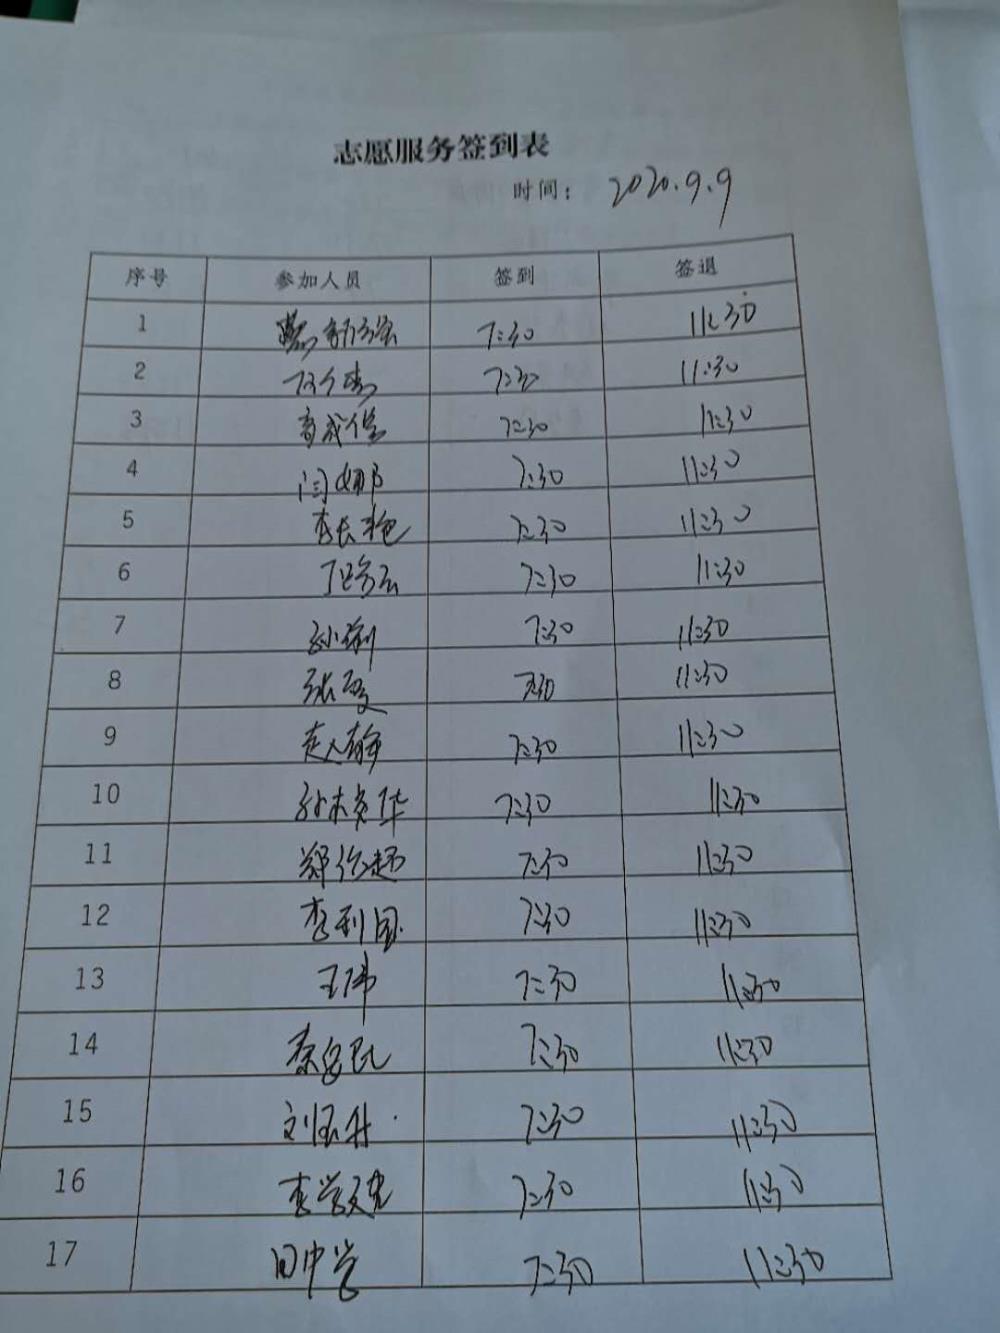 志愿服务签到表
时间： 2020.9.9
序号 参加人员 签到 签退
1 7:30 11:30
2 7:30 11:30
3 7:30 11:30
4 闫娜 7:30 11:30
5 李长艳 7:30 11:30
6 7:30 11:30
7 孙 7:30 11:30
8 张 7:30 11:30
9 7:30 11:30
10 7:30 11:30
11 郑 超 7:30 11:30
12 李利国 7:30 11:30
13 王伟 7:30 11:30
14 7:30 11:30
15 刘玉升 7:30 11:30
16 李学文 7:30 11:30
17 田中学 7:30 11:30